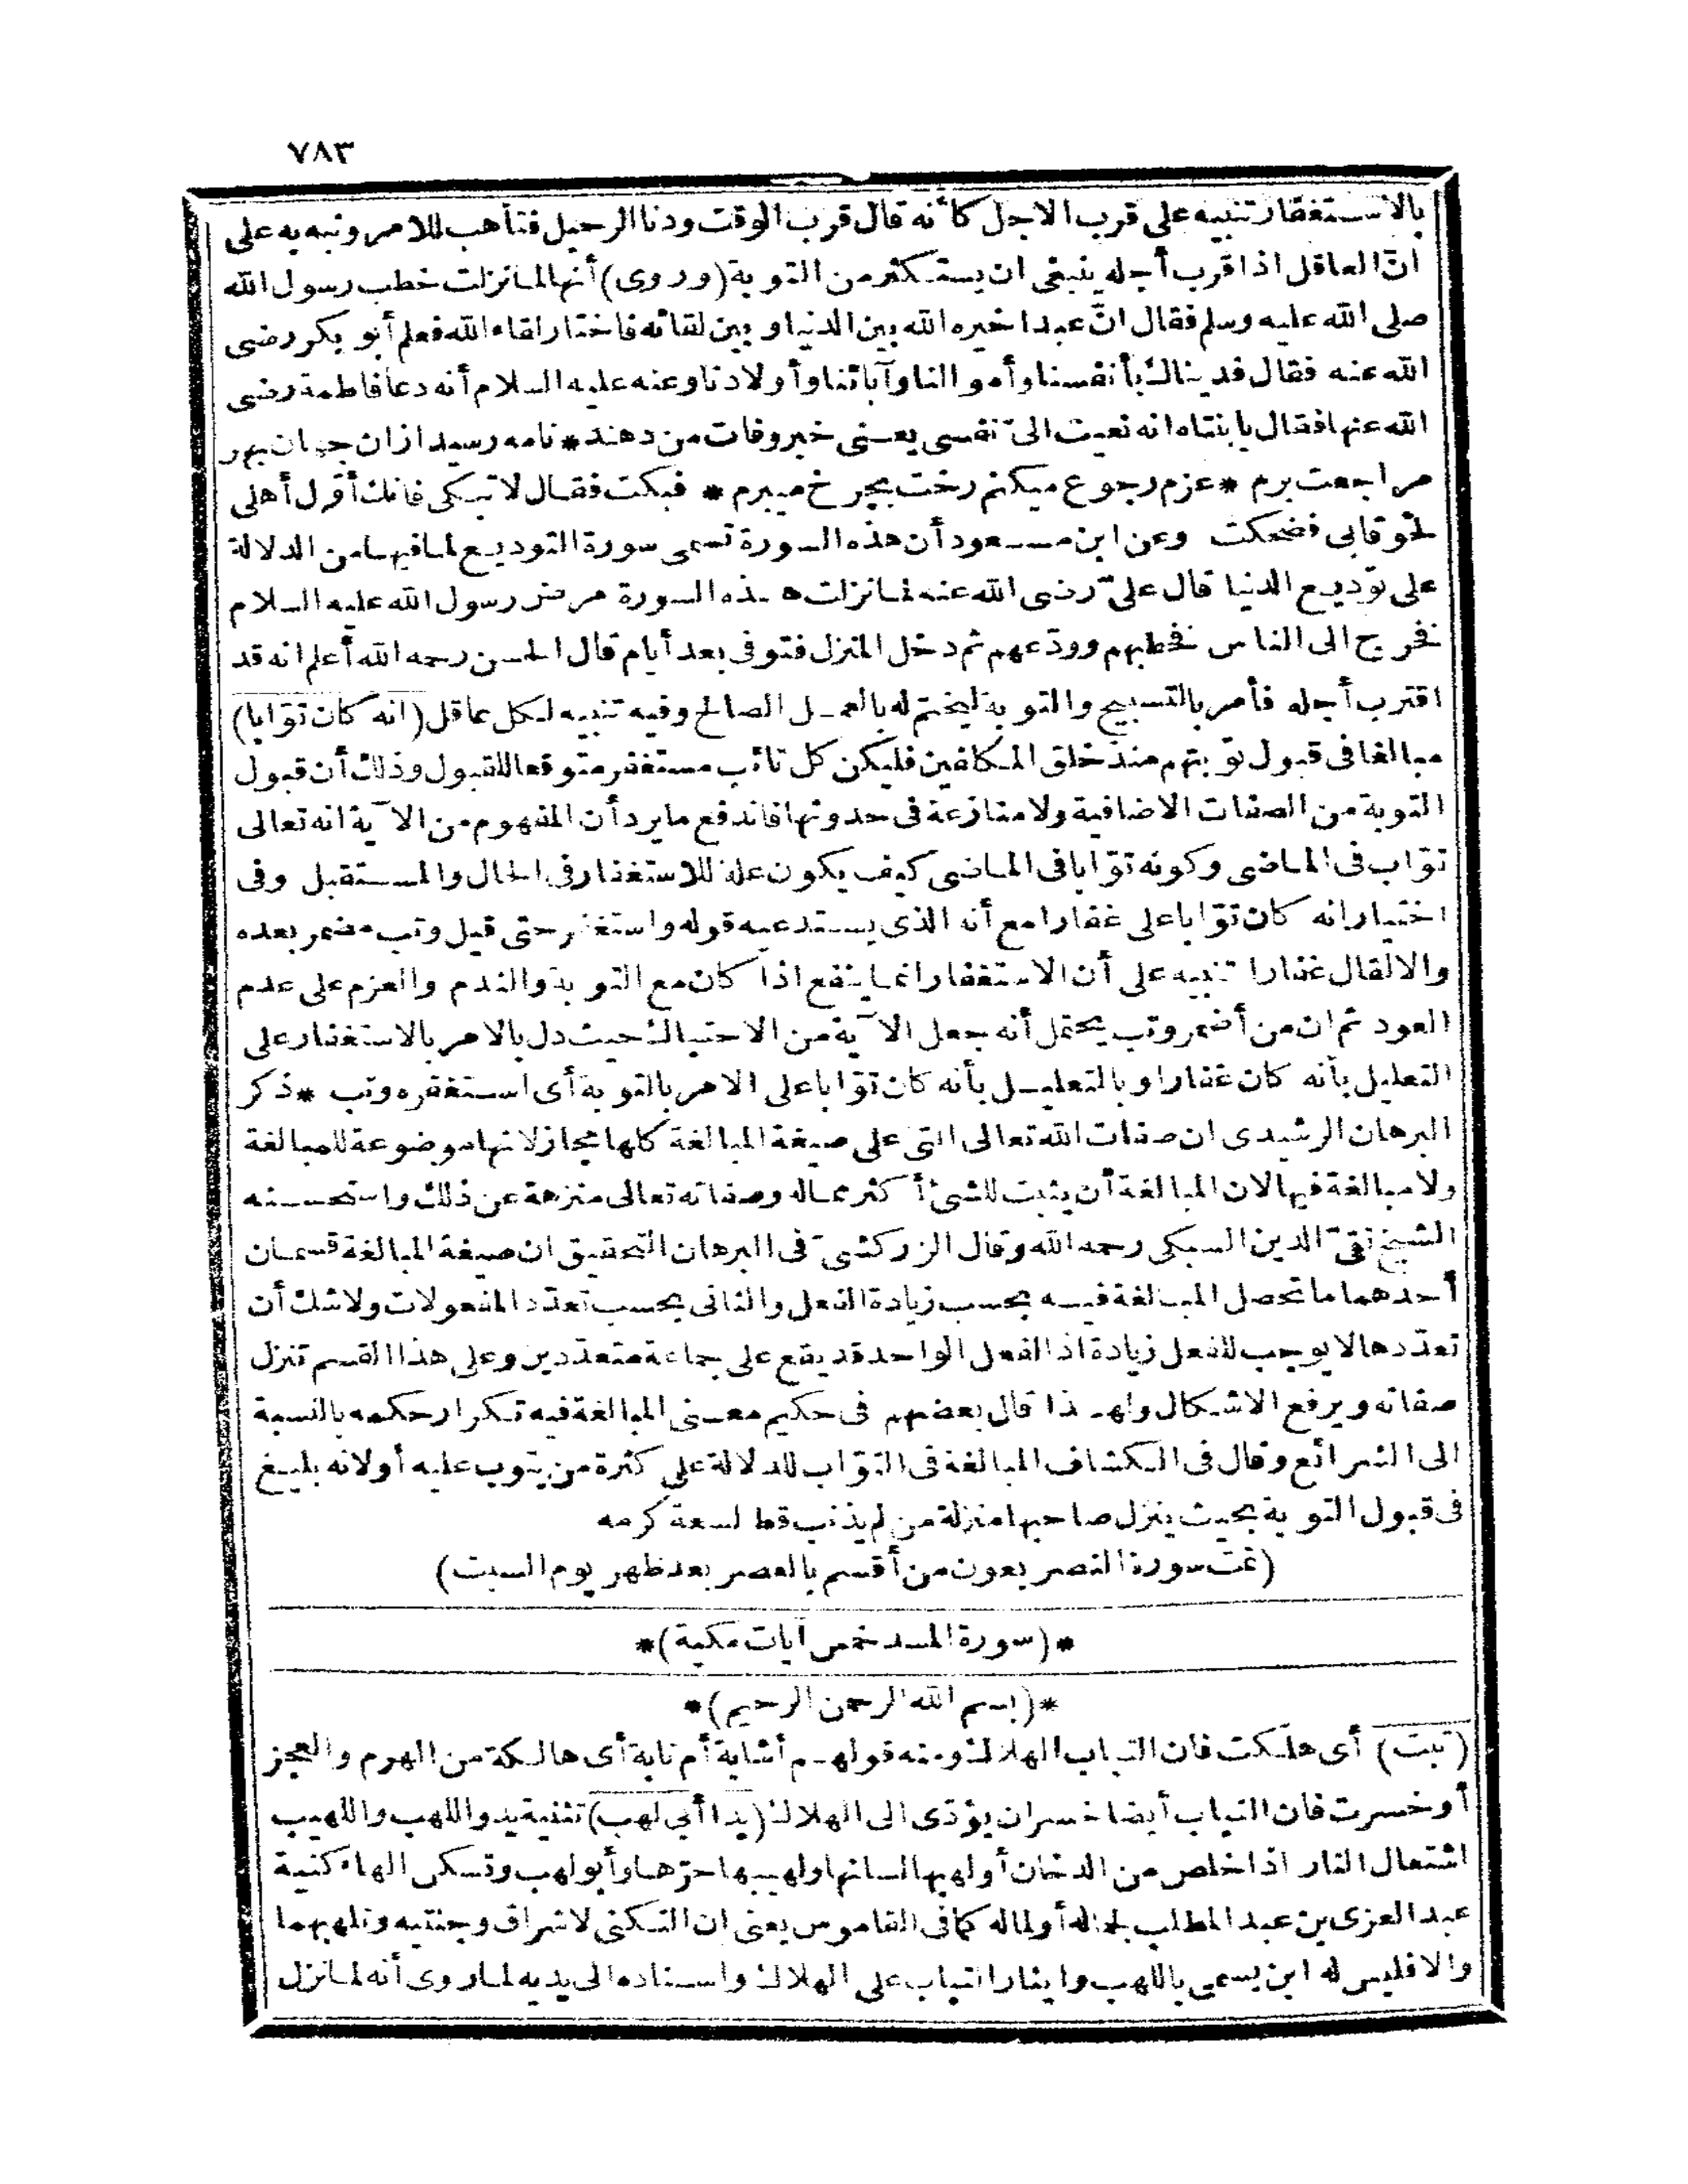 ٧٨٣
بالاستغفار تنبيه على قرب الاجل كأنه قال قرب الوقت ودنا الرحيل فتأهب للامر ونبه به على
انّ العاقل اذا قرب أجله ينبغى ان يستكثر من التوبة (وروى) أنها لما نزلت خطب رسول الله
صلى الله عليه وسلم فقال انّ عبدا خيره الله بين الدنيا وبين لقائه فاختار لقاء الله فعلم أبو بكر رضى
الله عنه فقال فديناك بأنفسنا وأموالنا وآبائنا وأولادنا وعنه عليه السلام أنه دعا فاطمة رضى
الله عنها فقال يا بنتاه انه نعيت الىّ نفسى يعنى خبر وفات من دهند * نامه رسيد ازان جهان بهر
مراجعت برم * عزم رجوع ميكنم رخت بچرخ ميبرم * فبكت فقال لا تبكى فانك أوّل أهلى
لحوقا بى فضحكت وعن ابن مسعود أن هذه السورة تسمى سورة التوديع لما فيها من الدلالة
على توديع الدنيا قال علىّ رضى الله عنه لما نزلت هذه السورة مرض رسول الله عليه السلام
فخرج الى الناس فخطبهم وودّعهم ثم دخل المنزل فتوفى بعد أيام قال الحسن رحمه الله أعلم انه قد
اقترب أجله فأمر بالتسبيح والتوبة ليختم له بالعمل الصالح وفيه تنبيه لكل عاقل (انه كان توّابا)
مبالغا فى قبول توبتهم منذ خلق المكلفين فليكن كل تائب مستغفر متوقعا للقبول وذلك أن قبول
التوبة من الصفات الاضافية ولا منازعة فى حدوثها فاندفع ما يرد أن المفهوم من الآية انه تعالى
توّاب فى الماضى وكونه توّابا فى الماضى كيف يكون علة للاستغفار فى الحال والمستقبل وفى
اختيار انه كان توّابا على غفارا مع أنه الذى يستدعيه قوله واستغفره حتى قيل وتب مضمر بعده
والا لقال غفارا تنبيه على أن الاستغفار انما ينفع اذا كان مع التوبة والندم والعزم على عدم
العود ثم ان من أضمر وتب يحتمل أنه جعل الآية من الاحتباك حيث دل بالامر بالاستغفار على
التعليل بأنه كان غفارا وبالتعليل بأنه كان توّابا على الامر بالتوبة أى استغفره وتب * ذكر
البرهان الرشيدى ان صفات الله تعالى التى على صيغة المبالغة كلها مجاز لانها موضوعة للمبالغة
ولا مبالغة فيها لان المبالغة أن يثبت للشئ أكثر مما له وصفاته تعالى منزهة عن ذلك واستحسنه
الشيخ تقىّ الدين السبكى رحمه الله وقال الزركشىّ فى البرهان التحقيق ان صيغة المبالغة قسمان
أحدهما ما تحصل المبالغة فيه بحسب زيادة الفعل والثانى بحسب تعدّد المفعولات ولا شك أن
تعدّدها لا يوجب للفعل زيادة اذ الفعل الواحد قد يقع على جماعة متعدّدين وعلى هذا القسم تنزل
صفاته ويرفع الاشكال ولهذا قال بعضهم فى حكيم معنى المبالغة فيه تكرار حكمه بالنسبة
الى الشرائع وقال فى الكشاف المبالغة فى التوّاب للدلالة على كثرة من يتوب عليه أو لانه بليغ
فى قبول التوبة بحيث ينزل صاحبها منزلة من لم يذنب قط لسعة كرمه
(تمت سورة النصر بعون من أقسم بالعصر بعد ظهر يوم السبت)
*(سورة المسد خمس آيات مكية)*
*(بسم الله الرحمن الرحيم)*
(تبت) أى هلكت فان التباب الهلاك ومنه قولهم أشابة أم تابة أى هالكة من الهرم والعجز
أو خسرت فان التباب أيضا خسران يؤدّى الى الهلاك (يدا أبى لهب) تثنية يد واللهب واللهيب
اشتعال النار اذا خلص من الدخان أو لهبها لسانها ولهيبها حرّها وأبو لهب وتسكن الهاء كنية
عبد العزى بن عبد المطلب لجماله أو لماله كما فى القاموس يعنى ان التكنى لاشراق وجنتيه وتلهبهما
والا فليس له ابن يسمى باللهب وايثار التباب على الهلاك واسناده الى يديه لما روى أنه لما نزل